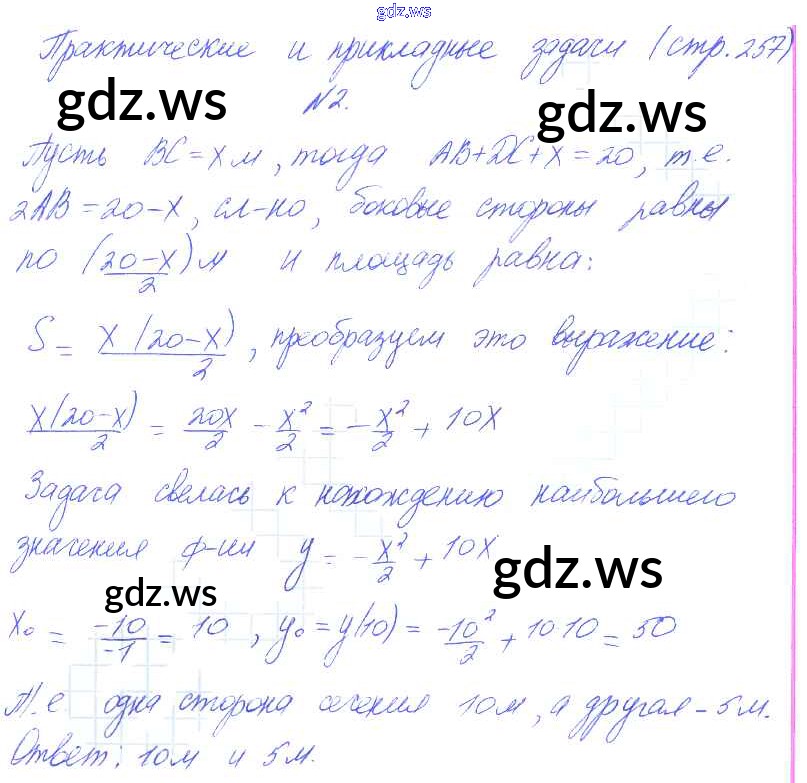 gdz.ws
Практические и прикладные задачи (стр. 257)
gdz.ws gdz.ws
№2.
Пусть BC = x м, тогда AB + DC + x = 20, т.е.
2AB = 20 - x, сл-но, боковые стороны равны
по (20-x)/2 м и площадь равна:
S = x(20-x)/2, преобразуем это выражение:
x(20-x)/2 = 20x/2 - x²/2 = -x²/2 + 10x
Задача свелась к нахождению наибольшего
значения ф-ии y = -x²/2 + 10x
gdz.ws gdz.ws
x₀ = -10/-1 = 10, y₀ = y(10) = -10²/2 + 10·10 = 50
Т.е. одна сторона сечения 10м, а другая - 5м.
Ответ: 10м и 5м.